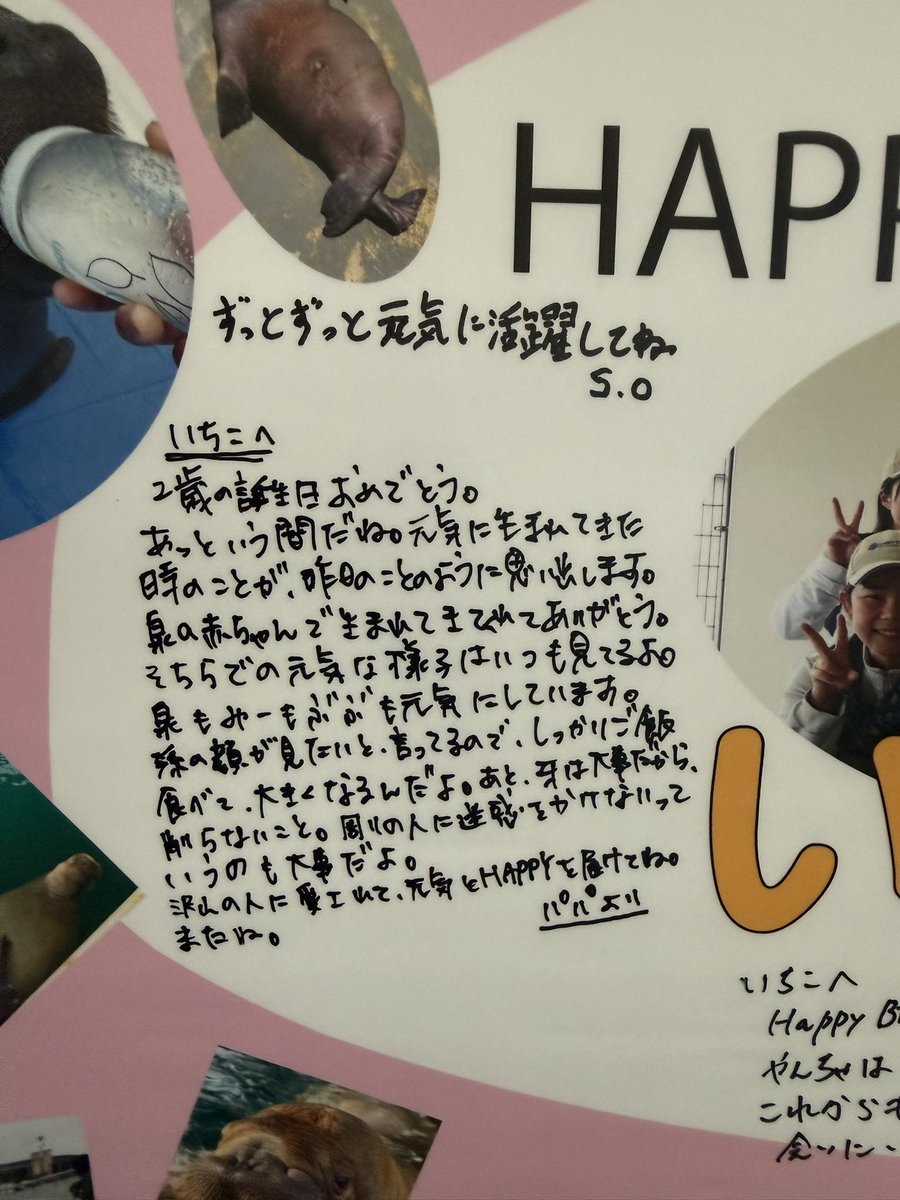 HAPP
ずっとずっと元気に活躍してね
S.O
いちこへ
2歳の誕生日おめでとう。
あっという間だね。元気に生まれてきた
時のことが、昨日のことのように思い出します。
泉の赤ちゃんで生まれてきてくれてありがとう。
そちらでの元気な様子はいつも見てるよ。
泉もみーもぶぶも元気にしています。
孫の顔が見たいと、言ってるので、しっかりご飯
食べて、大きくなるんだよ。あと、牙は大事だから、
削らないこと。周りの人に迷惑をかけないって
いうのも大事だよ。
沢山の人に愛されて、元気とHAPPYを届けてね。
またね。
パパより
い
いちこへ
Happy B
やんちゃは
これからも
会いに